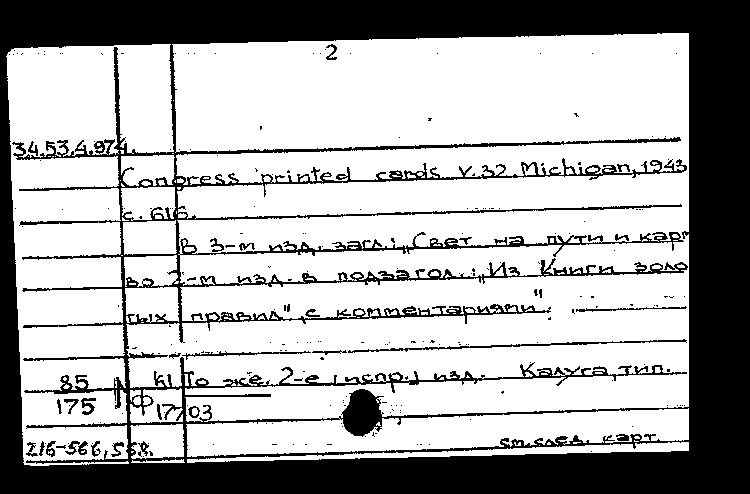 2
34.53.4.974.
Congress printed cards v.32. Michigan, 1943
с. 616.
В 3-м изд. загл.: „Свет на пути и кар
во 2-м изд. в подзагол.: „Из Книги золо
тых правил", с комментариями".
85 k1 То же. 2-е (испр.) изд. Калуга, тип.
175 Ф 17703
216-566, 568. см. след. карт.